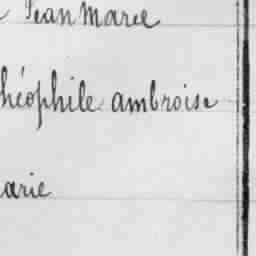 Jean Marie
héophile ambroise
arie